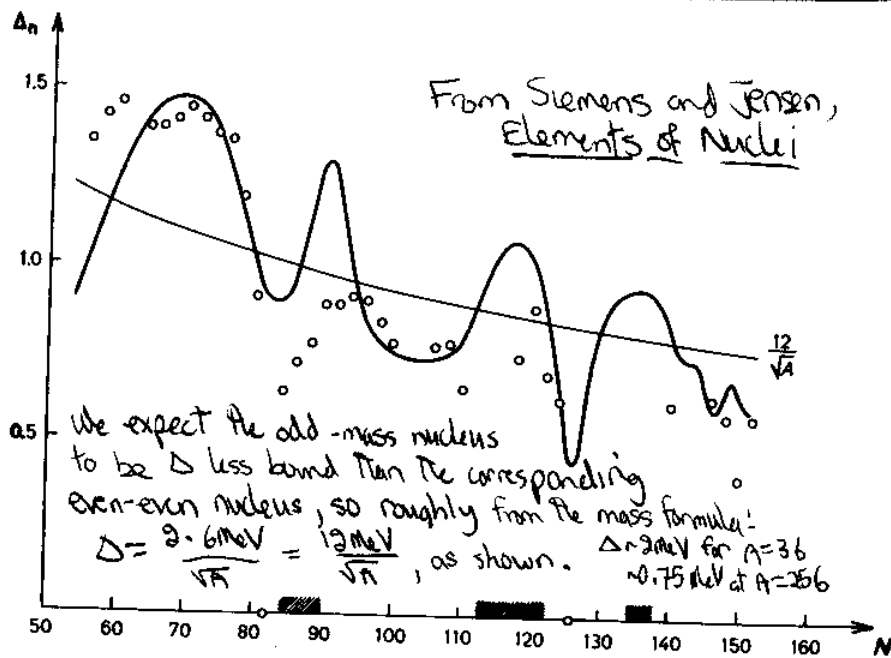 Δn
1.5
From Siemens and Jensen,
Elements of Nuclei
1.0
12/√A
0.5
We expect the odd-mass nucleus
to be Δ less bound than the corresponding
even-even nucleus, so roughly from the mass formula:
Δ = 2·6MeV/√A = 12MeV/√A, as shown.
Δ~2MeV for A=36
~0.75MeV at A=256
0
50 60 70 80 90 100 110 120 130 140 150 160 N